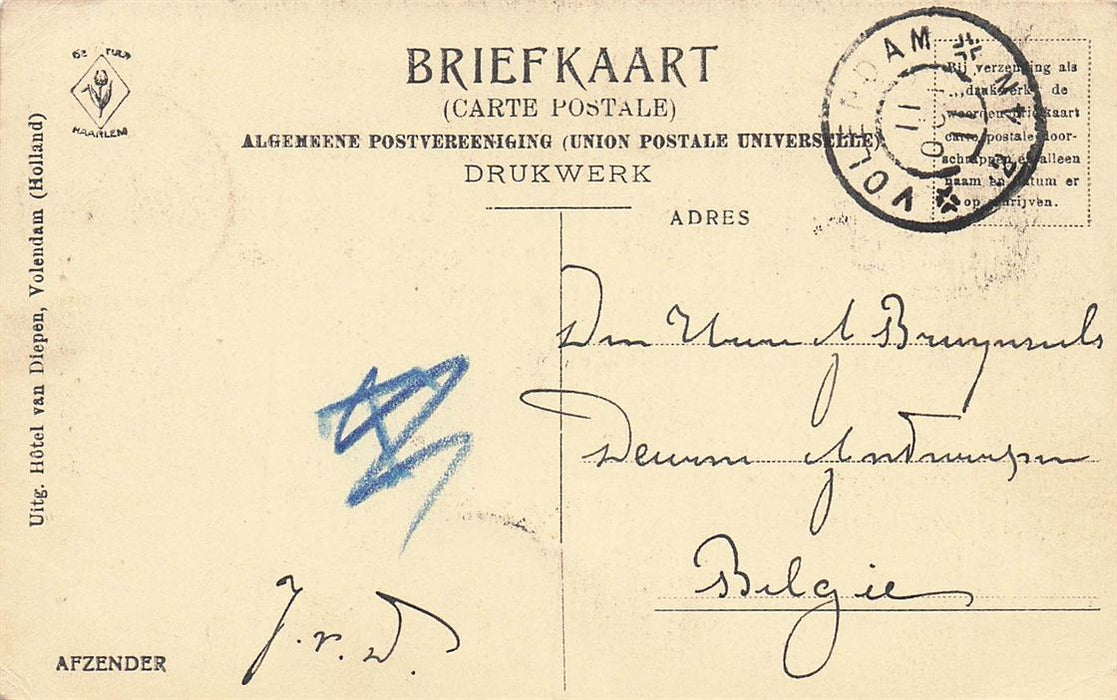 HAARLEM
BRIEFKAART
(CARTE POSTALE)
ALGEMEENE POSTVEREENIGING (UNION POSTALE UNIVERSELLE)
DRUKWERK
ADRES
VOLENDAM
Bij verzending als
drukwerk de
woorden briefkaart
carte postale door-
schrappen en alleen
naam en datum er
op schrijven.
Uitg. Hôtel van Diepen, Volendam (Holland)
Den Heer J Bruynseels
Deurne Antwerpen
Belgie
J. v. D.
AFZENDER